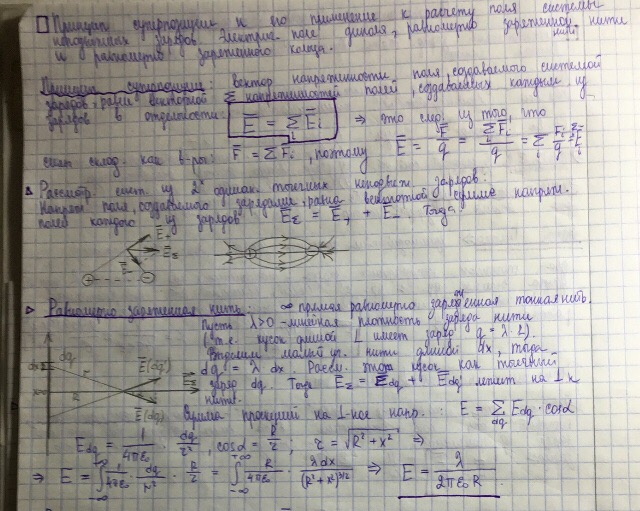 Принцип суперпозиции и его применение к расчету поля системы
неподвижных зарядов. Электрич. поле диполя, равномерно заряженной нити
и равномерно заряженного кольца.
Принцип суперпозиции: вектор напряженности поля, создаваемого системой
зарядов, равен векторной Σ напряженностей полей, создаваемых каждым из
зарядов в отдельности: E = Σ Ei ⇒ это след. из того, что
силы склад. как в-ры: F = Σ Fi, поэтому E = F/q = Σ Fi/q = Σ Fi/q = Σ Ei
Рассмотр. сист. из 2ух одинак. точечных неподвиж. зарядов.
Напряж. поля, создаваемого зарядами, равна векторной сумме напряж.
полей каждого из зарядов EΣ = E+ + E- Тогда:
E+
EΣ
E-
+
-
Равномерно заряженная нить: ∞ прямая равномерно заряженная тонкая нить.
Пусть λ>0 - линейная плотность заряда нити
(т.е. кусок длиной L имеет заряд q = λ·L)
малый уч. нити длиной dx, тогда
dq = λ dx. Рассм. этот кусок как точечный
заряд dq. Тогда EΣ = Edq + Edq лежит на ⊥ к
нити.
dq
dx
r
R
x=0
E(dq)
E(dq)
Сумма проекций на ⊥-ное напр.: E = Σ Edq · cosα
Edq = 1/4πε0 · dq/r², cosα = R/r; r = √R²+x² ⇒
⇒ E = ∫ 1/4πε0 · dq/r² · R/r = ∫ R/4πε0 · λdx/(R²+x²)^3/2 ⇒ E = λ/2πε0R